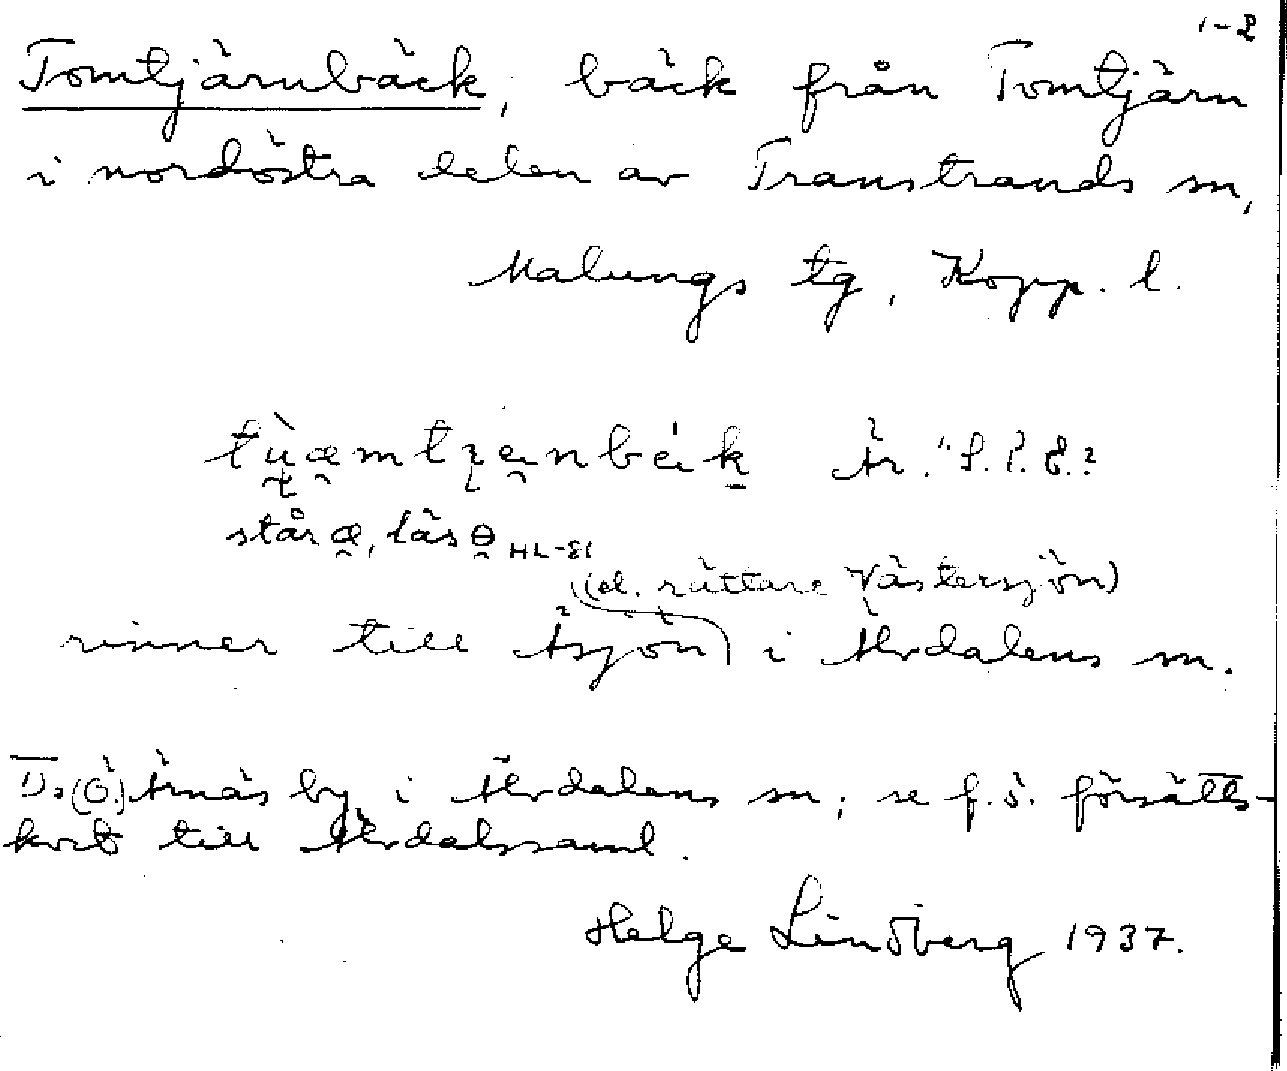 1-2
Tomtjärnbäck, bäck från Tomtjärn
i nordöstra delen av Transtrands sn,
Malungs tg, Kopp. l.
står æ, läs ɵ HL-81
(el. rättare Västersjön)
rinner till Åsjön i Älvdalens sn.
(Ö.) Årnäs by i Älvdalens sn; se f.ö. försätts-
kort till Älvdalssaml.
Helge Lindberg 1937.